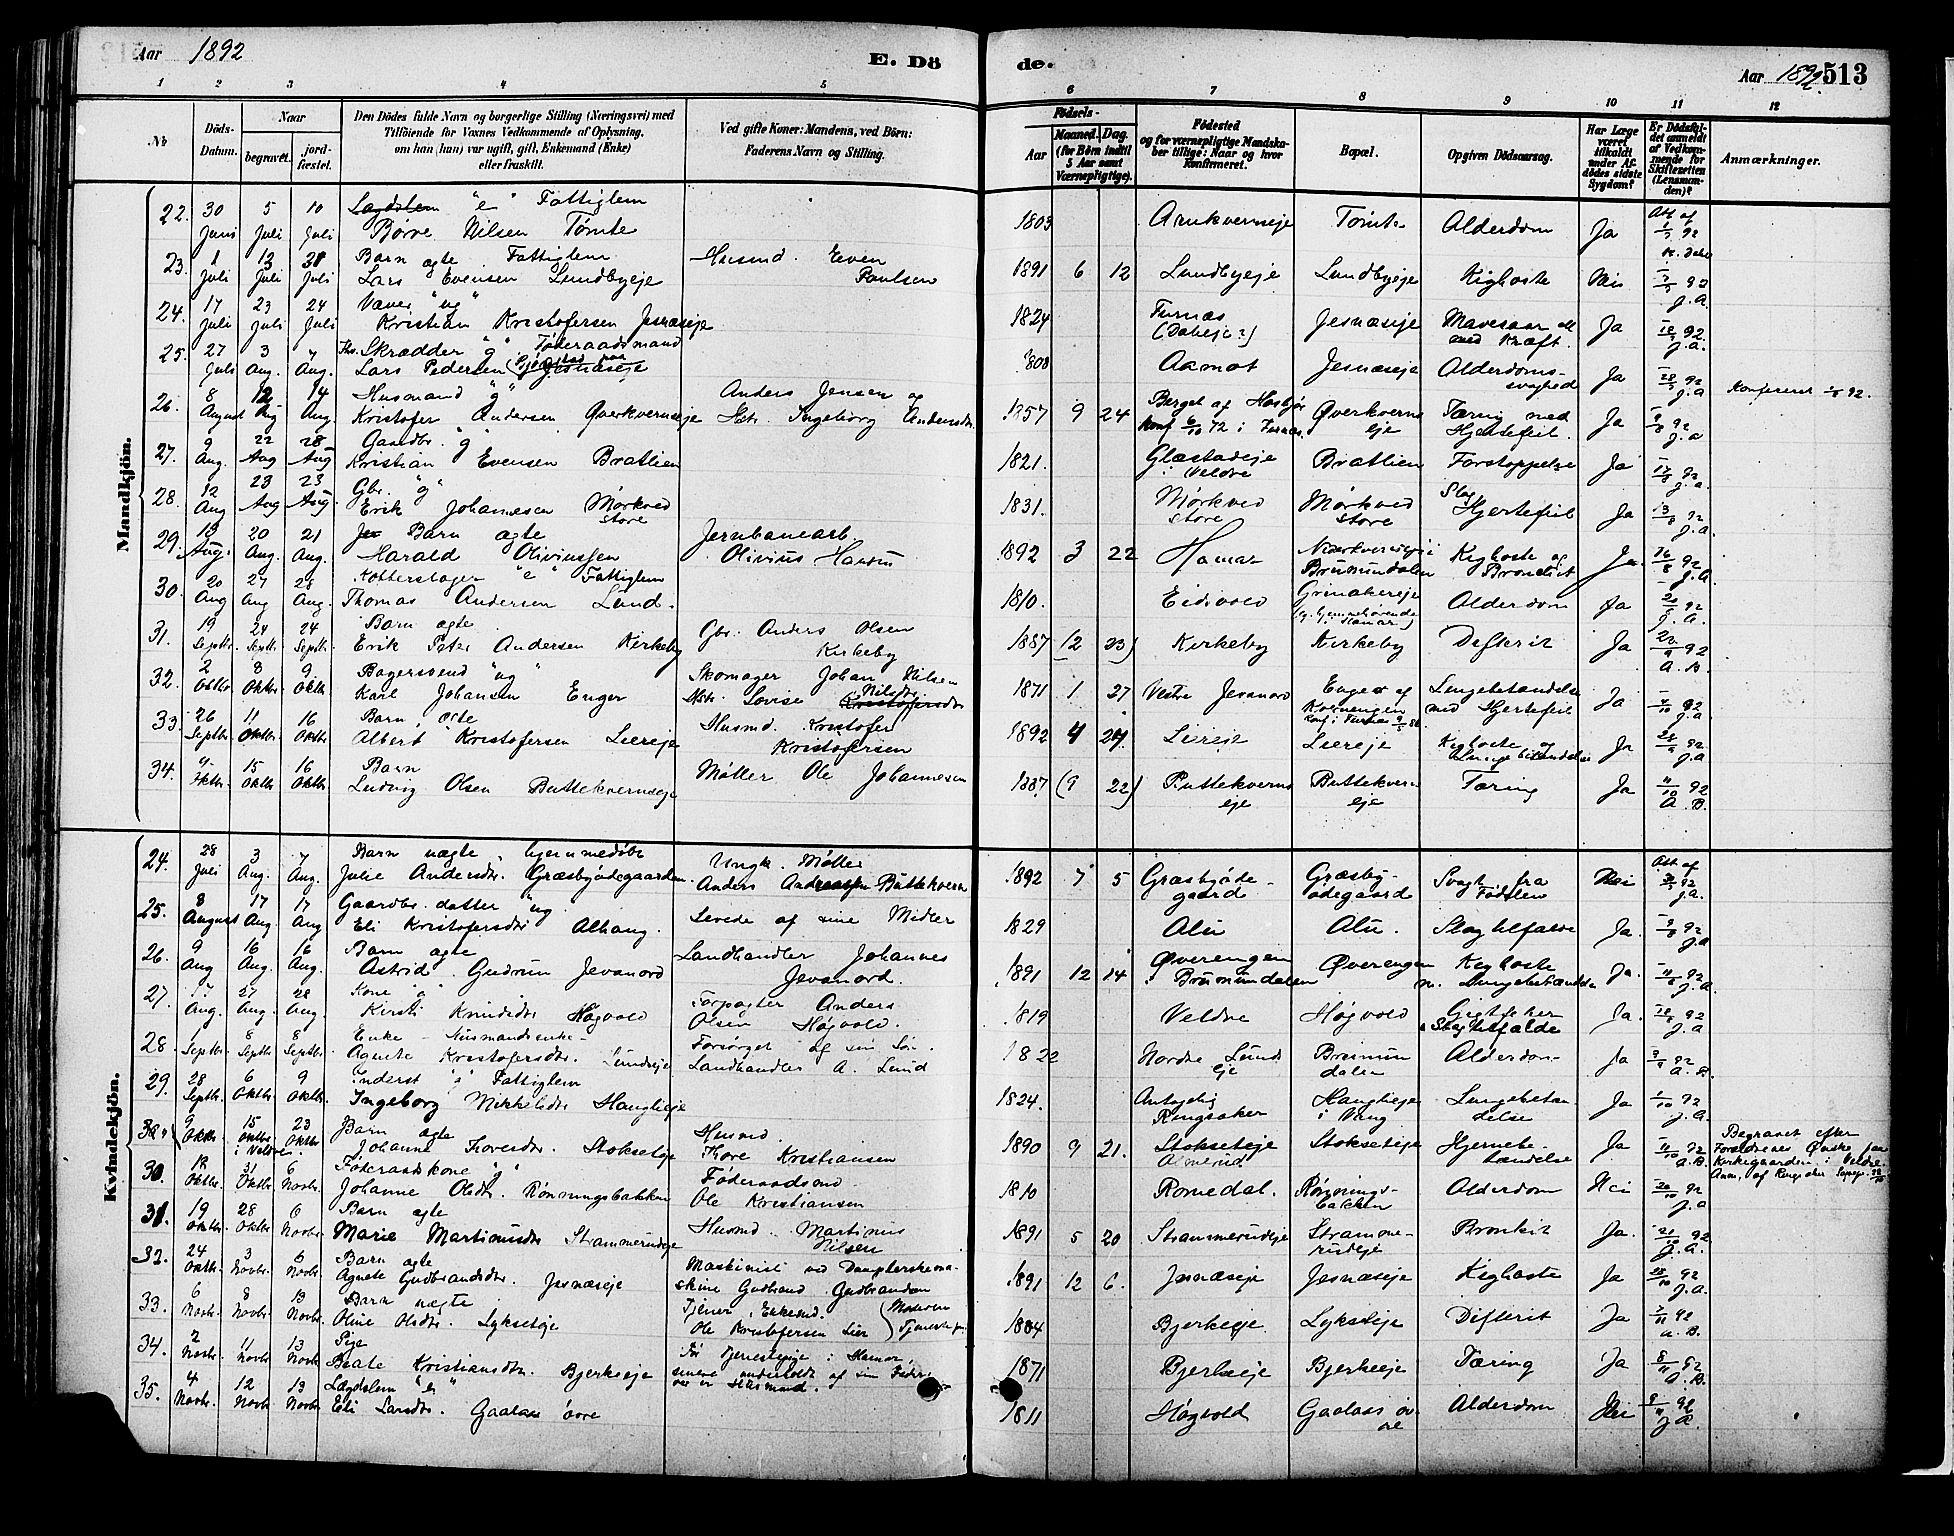 Aar 1892
E. Dö
de.
Aar 1892. 513
1 2 3 4 5 6 7 8 9 10 11 12
No
Döds-Datum.
Naar
begravet.
jordfæstet.
Den Dödes fulde Navn og borgerlige Stilling (Næringsvei) med
Tilföiende for Voxnes Vedkommende af Oplysning,
om han (hun) var ugift, gift, Enkemand (Enke)
eller fraskilt.
Ved gifte Koner: Mandens, ved Börn:
Faderens Navn og Stilling.
Födsels-
Aar
Maaned. Dag.
(for Börn indtil
5 Aar samt
Værnepligtige).
Födested
og for værnepligtige Mandskaber tillige: Naar og hvor
Konfirmeret.
Bopæl.
Opgiven Dödsaarsag.
Har Læge
været
tilkaldt
under Afdödes sidste
Sygdom?
Er Dödsfaldet anmeldt
af Vedkommende for
Skifteretten
(Lensmanden)?
Anmærkninger.
Mandkjön.
22. 30 Juni 5 Juli 10 Juli Lægdslem "e" Fattiglem
Börre Nilsen Tömte 1803 Arnkverneje Tömte Alderdom Ja
23. 1 Juli 13 Juli 31 Juli Barn ægte Fattiglem
Lars Evensen Lundbyeje Husmd. Even Paulsen 1891 6 12 Lundbyeje Lundbyeje Kighoste Nei
24. 17 Juli 23 Juli 24 Juli Væver "ug"
Kristian Kristofersen Jesnæseje 1824 Furnæs Jesnæseje Mavesaar med Kræft. Ja
25. 27 Juli 3 Aug. 7 Aug. Skrædder "g" Föderaadsmand
Lars Pedersen Jesnæseje 1808 Aamot Jesnæseje Alderdomssvaghed Ja
26. 8 August 12 Aug 14 Aug Husmand "g"
Kristofer Andersen Qverkverneje Anders Jensen og
Ingeborg Andersdtr. 1857 9 24 Berget af Hosbjör
Konf 6/10 72 i Furnæs. Qverkverneje Tæring med Hjertefeil. Ja Konfereret 92.
27. 9 Aug. 22 Aug 28 Aug Gaardbr. "g"
Kristian Evensen Bratlien 1821. Glæstadeje i Veldre Bratlien Forstoppelse Ja
28. 12 Aug 23 Aug 23 Aug Gbr. "g"
Erik Johannesen Mörkved store 1831. Mörkved store Mörkved store Slag Hjertefeil Ja
29. 13 Aug. 20 Aug. 21 Aug. Barn ægte
Harald Oliviussen Jernbanearb.
Olivius Hansen 1892 3 22 Hamar Brumundalen Kighoste og Bronchit Ja
30. 20 Aug 27 Aug 28 Aug. "e" Fattiglem
Thomas Andersen Lund. 1810. Eidsvold Grinakereje Alderdom Ja
31. 19 Septb. 24 Septb. 24 Septb. Barn ægte
Erik Peter Andersen Kirkeby Gbr. Anders Olsen Kirkeby 1887 (12 23) Kirkeby Kirkeby Difterit Ja
32. 2 Oktbr. 8 Oktbr. 9 Oktbr. Bagersvend "ug"
Karl Johansen Enger Skomager Johan Nilsen
Lovise Nilsdtr Kristofersdtr 1871 1 27 Vestre Jevanord Enger af Kornengen Lungebetændelse med Hjertefeil Ja
33. 26 Septbr. 11 Oktbr. 16 Oktbr. Barn ægte
Albert Kristofersen Liereje Husmd. Kristofer Kristofersen 1892 4 24 Liereje Liereje Kighoste og Lungebetændelse Ja
34. 4 Oktbr. 15 Oktbr 16 Oktbr Barn
Ludvig Olsen Buttekverneje Möller Ole Johannesen 1887 (9 22) Buttekverneje Buttekverneje Tæring Ja
Kvindekjön.
24. 28 Juli 3 Aug. 7 Aug. Barn uægte, hjemmedöbt
Julie Andersdtr. Græsbyödegaarden. Ungk. Möller
Anders Andreassen Buttekvern 1892 7 5 Græsbyödegaard Græsbyödegaard Svag fra Födslen Nei
25. 8 August 17 Aug 17 Aug Gaardbr. datter "ug"
Eli Kristofersdtr Alhaug. Levede af sine Midler 1829 Alu Alu. Slagtilfælde Ja.
26. 9 Aug 16 Aug. 16 Aug. Barn ægte
Astrid Gudrun Jevanord Landhandler Johannes Jevanord. 1891 12 14 Qverengen i Brumundalen Qverengen Kighoste m. Lungebetændelse Ja.
27. Aug. 27 Aug. 28 Aug. Kone "g"
Kirsti Knudsdtr Högvold Forpagter Anders Olsen Högvold. 1819 Veldre Högvold Gigtfeber Slagtilfælde Ja.
28. Septbr. 8 Septbr 8 Septbr. Enke - Husmandsenke -
Agnete Kristofersdtr. Lundseje Forsörget af sin Sön.
Landhandler A. Lund 1822 Nordre Lundseje Brumundalen Alderdom Ja
29. 28 Septbr. 6 Oktbr. 9 Oktbr. Inderst "e" Fattiglem
Ingeborg Mikkelsdtr Hauglieje 1824. Antagelig Ringsaker Hauglieje i Vang Lungebetændelse Ja
9 Oktbr. 15 Oktbr i Veldre. 23 Oktbr. Barn ægte
Johanne Thoresdtr. Stokseteje Husmd.
Thore Kristiansen 1890 9 21. Stokseteje Almerud Stokseteje Hjernebetændelse Ja Begravet efter
Forældrenes Önske paa
Kirkegaarden i Veldre
30. 18 Oktbr. 31 Oktbr. 6 Novbr. Föderaadskone "g"
Johanne Olsdtr. Rönningsbakken Föderaadsmd.
Ole Kristiansen 1810 Romedal. Rönningsbakken Alderdom Nei
31. 19 Oktbr. 28 Oktbr. 6 Novbr. Barn ægte
Marie Martinusdtr Strammerudeje Husmd. Martinus Nilsen 1891 5 20 Strammerudeje Strammerudeje Bronkit Ja.
32. 24 Oktbr. 3 Novbr. 6 Novbr. Barn ægte
Agnete Gudbrandsdtr. Jesnæseje Maskinist ved Damptærskemaskine Gudbrand Gudbrandsen 1891 12 6. Jesnæseje Jesnæseje Kighoste Ja
33. 6 Novbr. 8 Novbr. 13 Novbr. Barn uægte
Oline Olsdtr. Lykseteje Tjener, Enkemd.
Ole Kristofersen Lier 1884 Bjerkeeje Lykseteje Difterit Ja
34. 2 Novbr. 11 Novbr. 13 Novbr. Pige
Beate Kristiansdtr. Bjerkeeje För Tjenestepige i Hamar
senere underholdt af sin Fader
der er Husmand. 1871 Bjerkeeje Bjerkeeje Tæring Ja
35. 4 Novbr. 12 Novbr 13 Novbr. Lægdslem "e"
Eli Larsdtr. Gaalaas övre 1811 Högvold Gaalaas övre Alderdom Nei